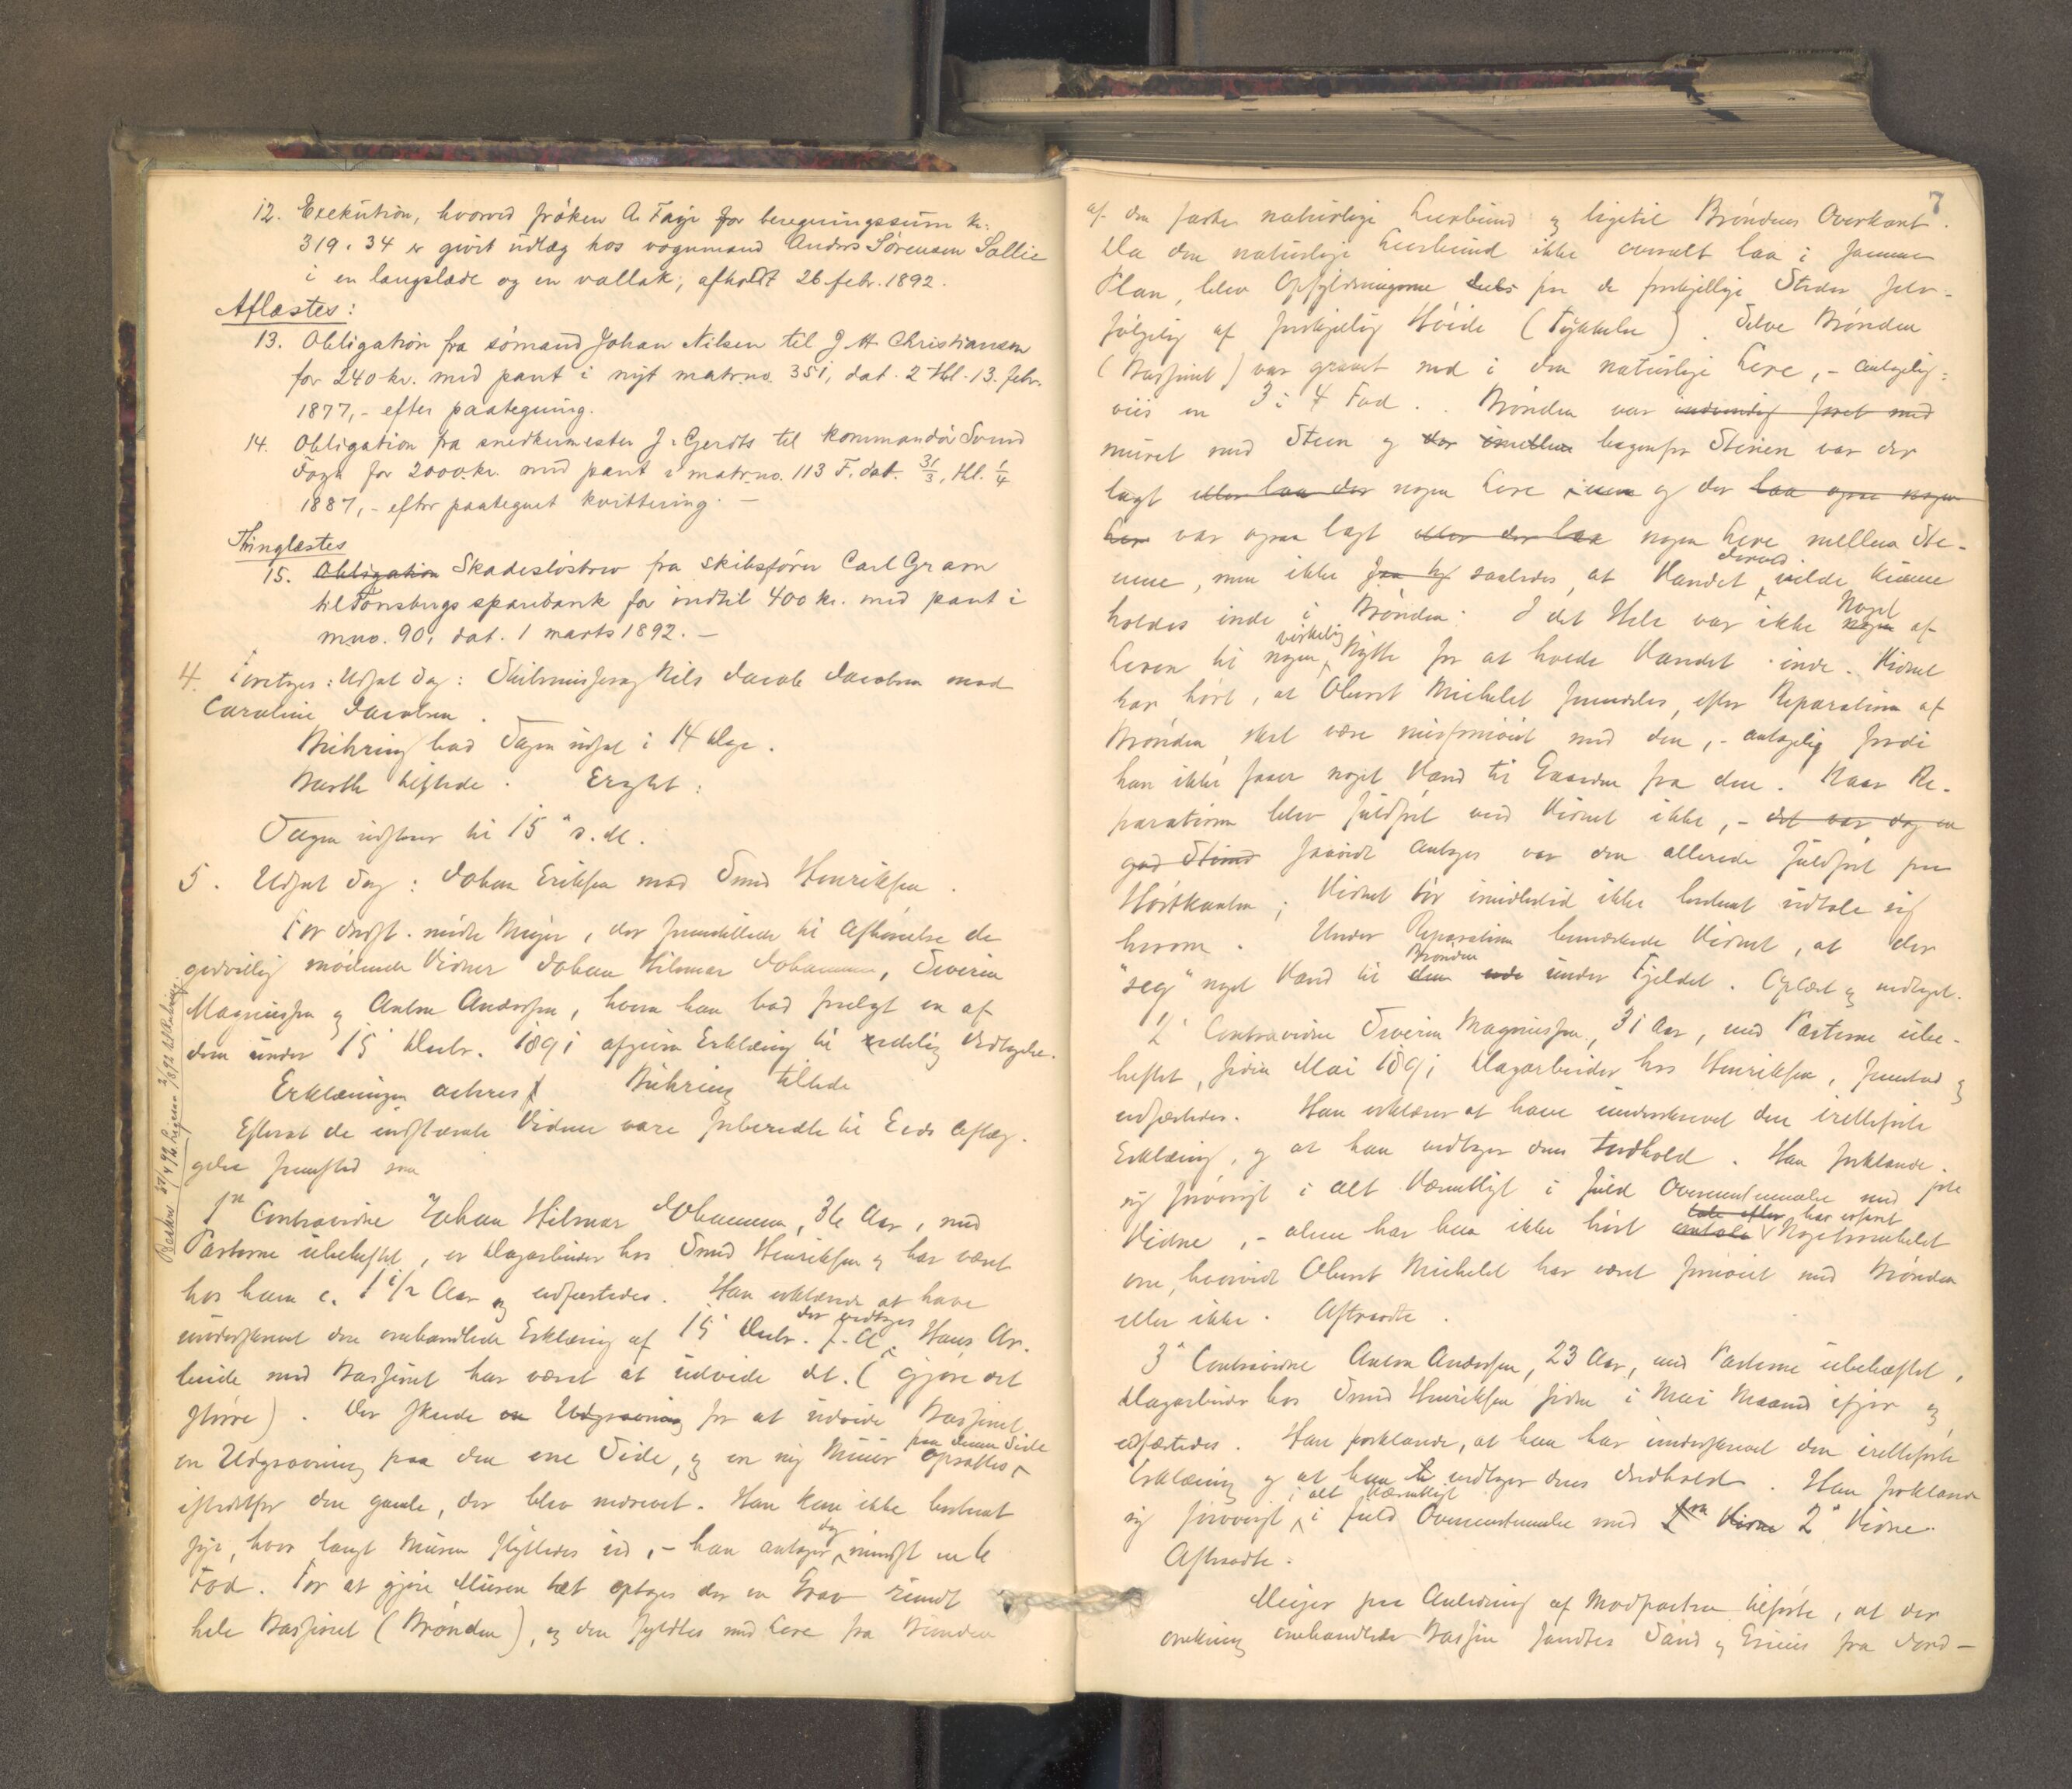 12. Exekution, hvorved frøken A. Faye for beregningssum kr.
319.34 er givet udlæg hos vognmand Anders Sørensen Sollie
i en langslæde og en vallak; afholdt 26 febr. 1892.
Aflæstes:
13. Obligation fra sømand Johan Nilsen til J H Christiansen
for 240 kr. med pant i nyt matr.no. 351, dat. 2 thl. 13. febr.
1877, - efter paategning.
14. Obligation fra snedkermester J. Gjerdts til kommandør Svend
Foyn for 2000 kr. med pant i matr.no. 113 F. dat. 31/3, thl. 1/4
1887, - efter paategnet kvittering. -
Thinglæstes
15. Obligation Skadesløsbrev fra skibsfører Carl Gram
til Tønsbergs sparebank for indtil 400 kr. med pant i
m.no. 90, dat. 1 marts 1892. -
4. Foretoges: Udsat Sag: Skilsmissesag Nils Jacob Jacobsen mod
Caroline Jacobsen.
Bühring bad Sagen udsat i 14 Dage.
Barth tiltraadte. Eragtet:
Sagen udsættes til 15 d. M.
5. Udsat Sag: Johan Eriksen mod Smed Henriksen.
For Indst. mødte Meijer, der fremstillede til Afhørelse de
godvillig mødende Vidner Johan Hilmar Johannesen, Severin
Magnussen og Anton Anderssen, hvem han bad forelagt en af
dem under 15 Decbr. 1891 afgiven Erklæring til edelig Vedtagelse.
Erklæringen acteres Bühring tilstede
Efterat de indstævnte Vidner vare forberedte til Eeds Aflæg-
gelse fremstod som
1ste Contravidne Johan Hilmar Johannesen, 36 Aar, med
Parterne ubeheftet, er Dagarbeider hos Smed Henriksen og har været
hos ham c. 1 1/2 Aar og edfæstedes. Han erklærede at have
underskrevet den omhandlede Erklæring af 15 Decbr. f. A. der vedtages Hans Ar-
beide med Bassinet har været at udvide det. (gjøre det
større). Der skede en Udgravning for at udvide Bassinet
en Udgravning paa den ene Side, og en ny Muur opsattes paa denne Side
istedetfor den gamle, der blev nedrevet. Han kan ikke bestemt
sige, hvor langt Muren flyttedes ud, - han antager dog mindst en 6
Fod. For at gjøre Muren tæt optoges der en Grav rundt
hele Bassinet (Brønden), og den fyldtes med Lere fra Bunden
Beskr 30/4 92
7
af den faste naturlige Leerbund og ligetil Brøndens Overkant.
Da den naturlige Leerbund ikke overalt laa i samme
Plan, blev Opfyldningerne dels paa de forskjellige Steder selv-
følgelig af forskjellig Høide (Tykkelse). Selve Brønden
(Bassinet) var gravet ned i den naturlige Lere, - antagelig-
viis en 3 á 4 Fod. Brønden var indvendig foret med
muret med Steen og der imellem bagenfor Stenen var der
lagt eller laa der nogen Lere og der laa ogsaa nogen
Lere var ogsaa lagt eller der laa nogen Lere mellem Ste-
nene, men ikke saaledes, at Vandet derved vilde kunne
holdes inde i Brønden. I det Hele var ikke nogen Noget af
Leren til nogen virkelig Nytte for at holde Vandet inde. Vidnet
har hørt, at Oberst Michelet fremdeles, efter Reparationen af
Brønden skal være misfornøiet med den, - antagelig fordi
han ikke faaer noget Vand til Gaarden fra den. Naar Re-
parationen blev fuldført ved Vidnet ikke, - det var dog en
god Stund saavidt antages var den allerede fuldført paa
Høstkanten; Vidnet tør imidlertid ikke bestemt udtale sig
herom. Under Reparationen bemærkede Vidnet, at der
"seg" noget Vand til dem Brønden inde under Fjeldet. Oplæst og vedtaget.
2 Contravidne Severin Magnussen, 31 Aar, med Parterne ube-
heftet, siden Mai 1891 Dagarbeider hos Henriksen, fremstod og
edfæstedes. Han erklærer at have underskrevet den irettelagte
Erklæring, og at han vedtager dens Indhold. Han forklarede
sig forøvrigt i alt Væsentligt i fuld Overensstemmelse med første
Vidne, - alene har han ikke hørt omtale tale efter, har erfaret Nogetsomhelst
om, hvorvidt Oberst Michelet har været fornøiet med Brønden
eller ikke. Aftraadte.
3 Contravidne Anton Anderssen, 23 Aar, med Parterne ubeheftet,
Dagarbeider hos Smed Henriksen siden i Mai Maaned ifjor og
edfæstedes. Han forklarede, at han har underskrevet den irettelagte
Erklæring og at han vedtager dens Indhold. Han forklarede
sig forøvrigt i alt Væsentligt i fuld Overensstemmelse med Vidne 2 Vidne.
Aftraadte.
Meijer paa Anledning af Modparten tilførte, at der
omkring omhandlede Bassin fandtes Sand og Gruus fra Jord-